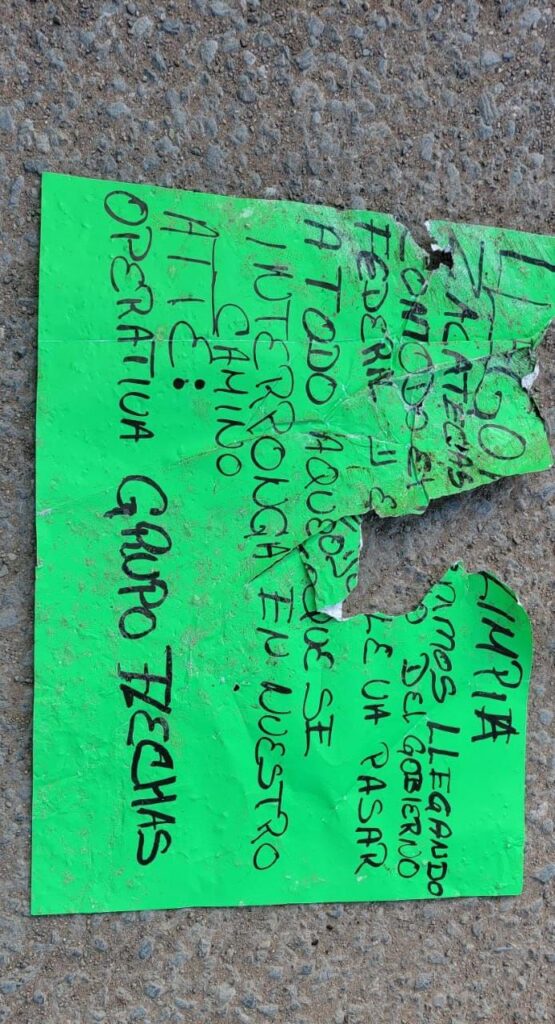 LLEGO, LIMPIA
ZACATECAS AMOS LLEGANDO
CON TODO EL DEL GOBIERNO
FEDERAL Y LE VA PASAR
A TODO QUE SE
INTERRONGA EN NUESTRO
CAMINO
ATTE:
OPERATIVA GRUPO FLECHAS